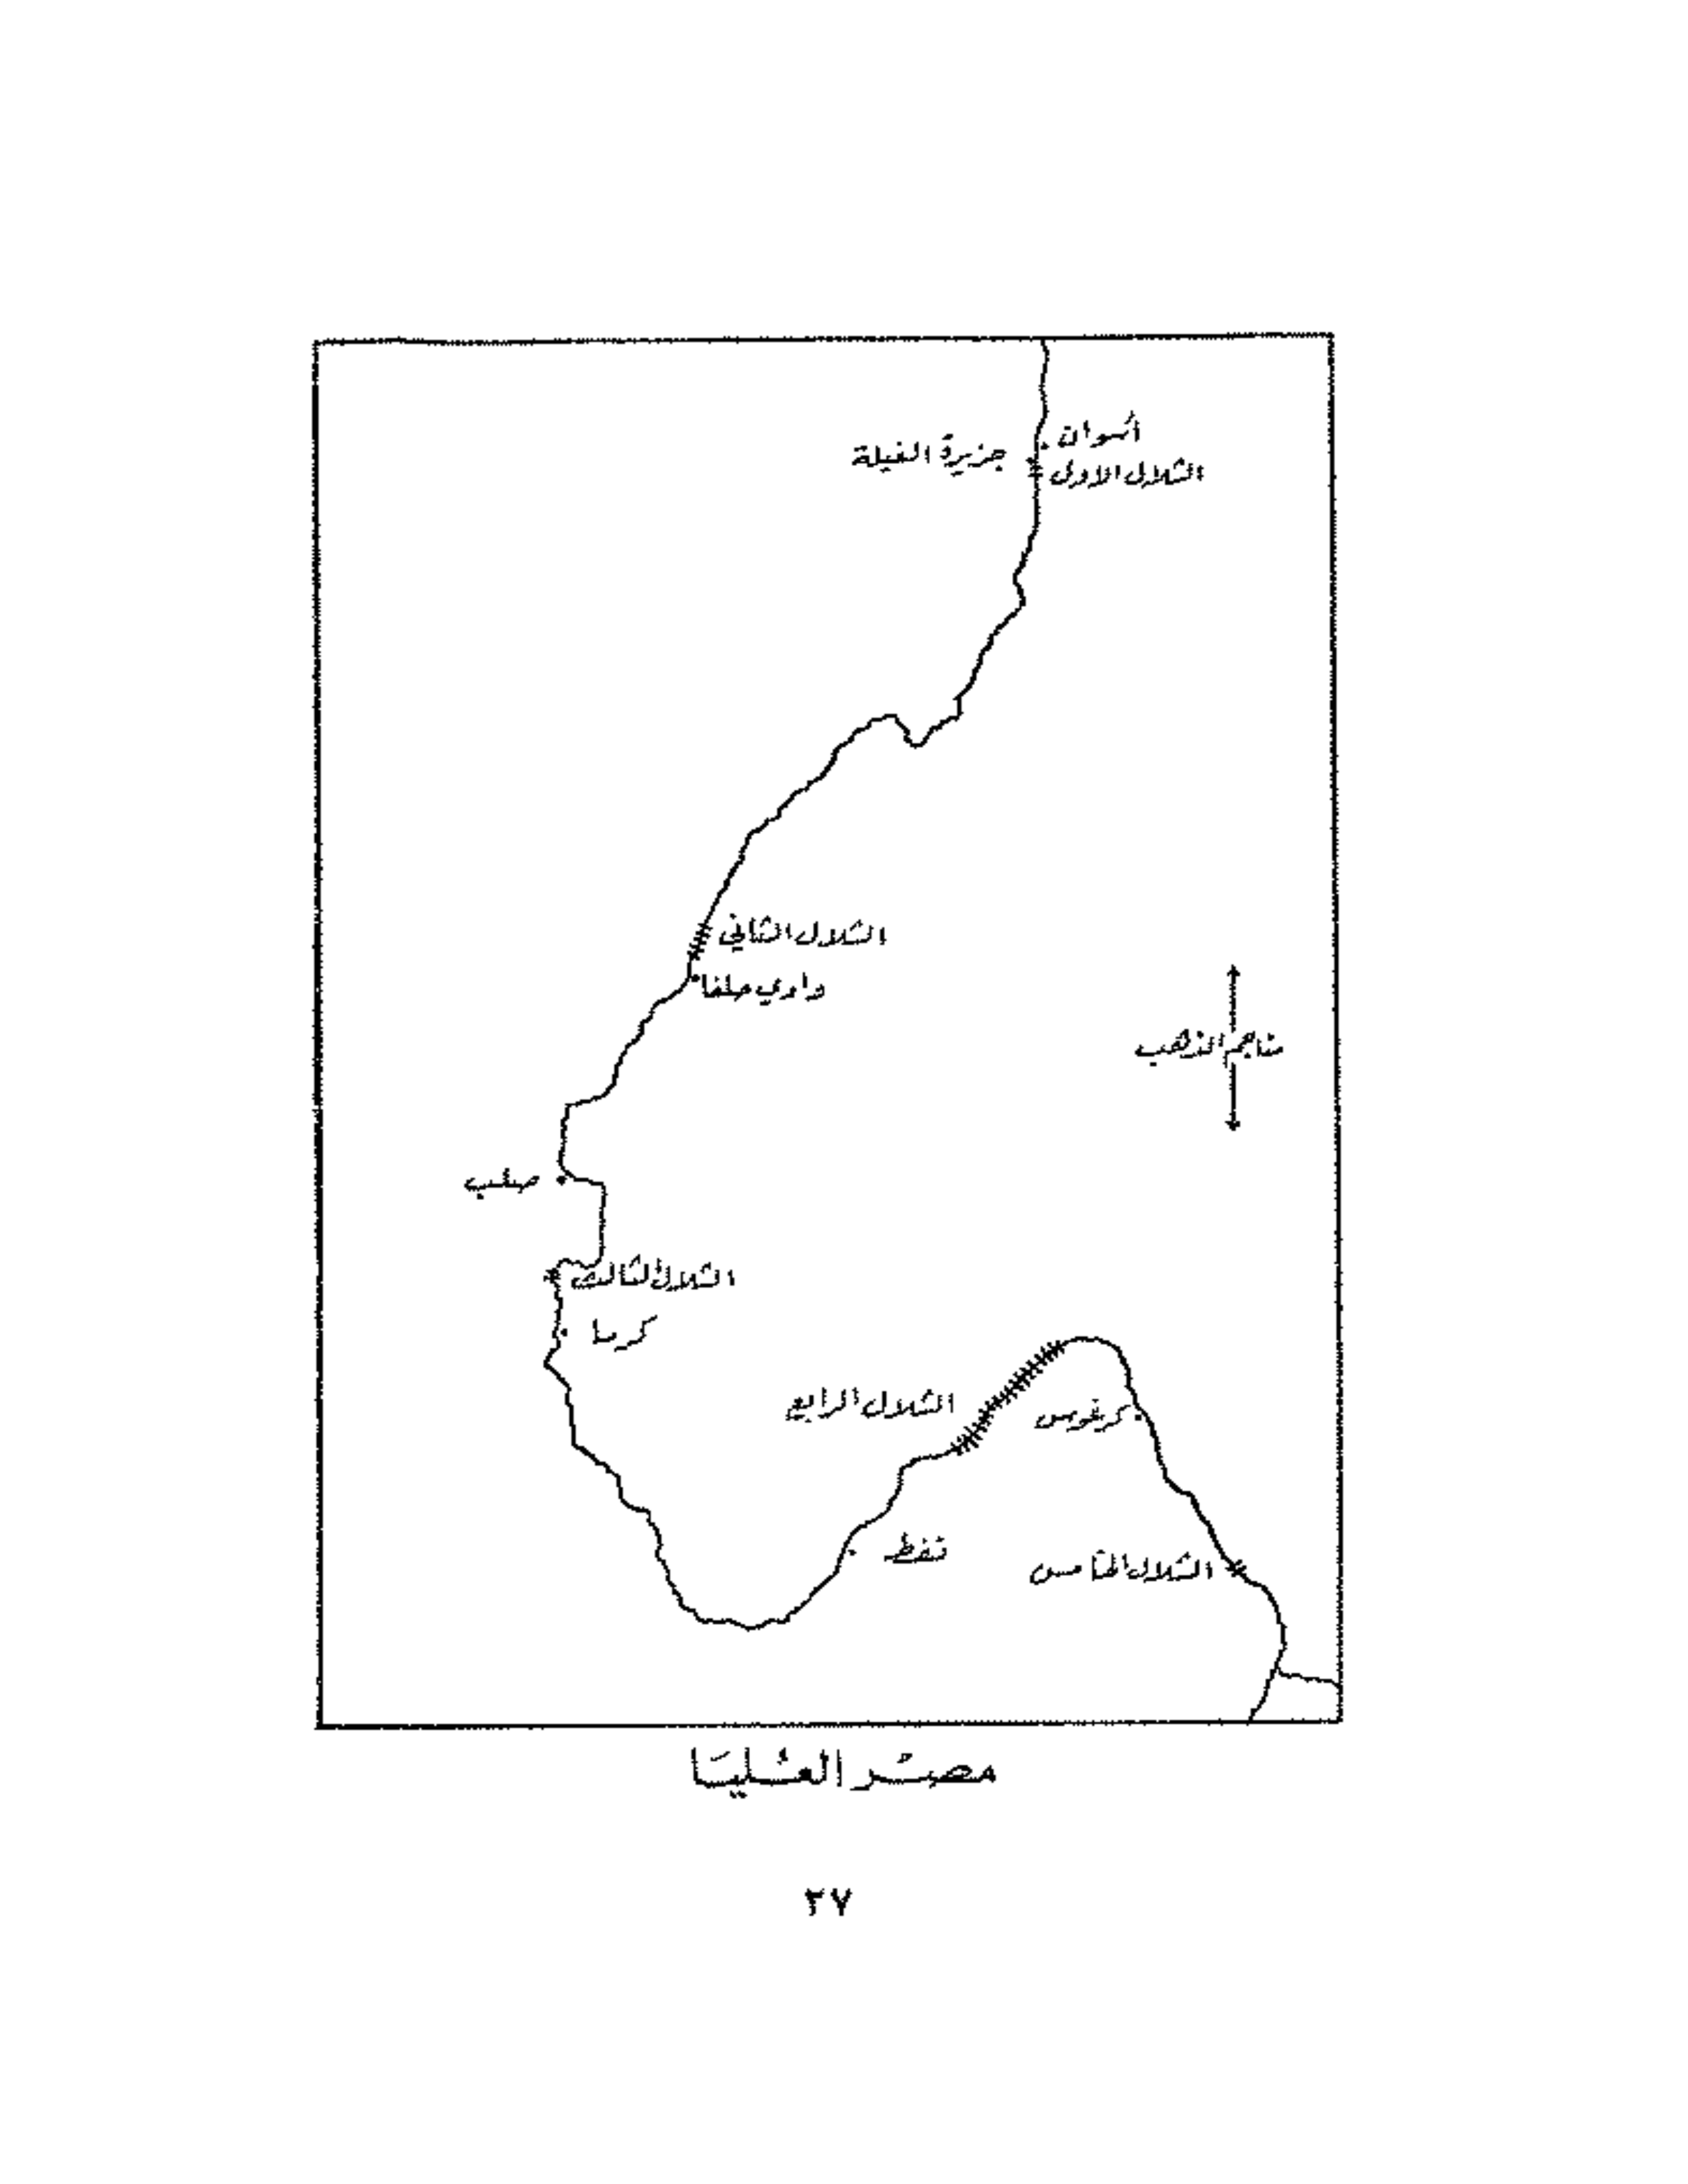 أسوان
جزيرة الفيلة
الشلال الاول
الشلال الثاني
وادي حلفا
مناجم الذهب
صلب
الشلال الثالث
كرما
الشلال الرابع
كرغوس
نفط
الشلال الخامس
مصر العليا
٢٧